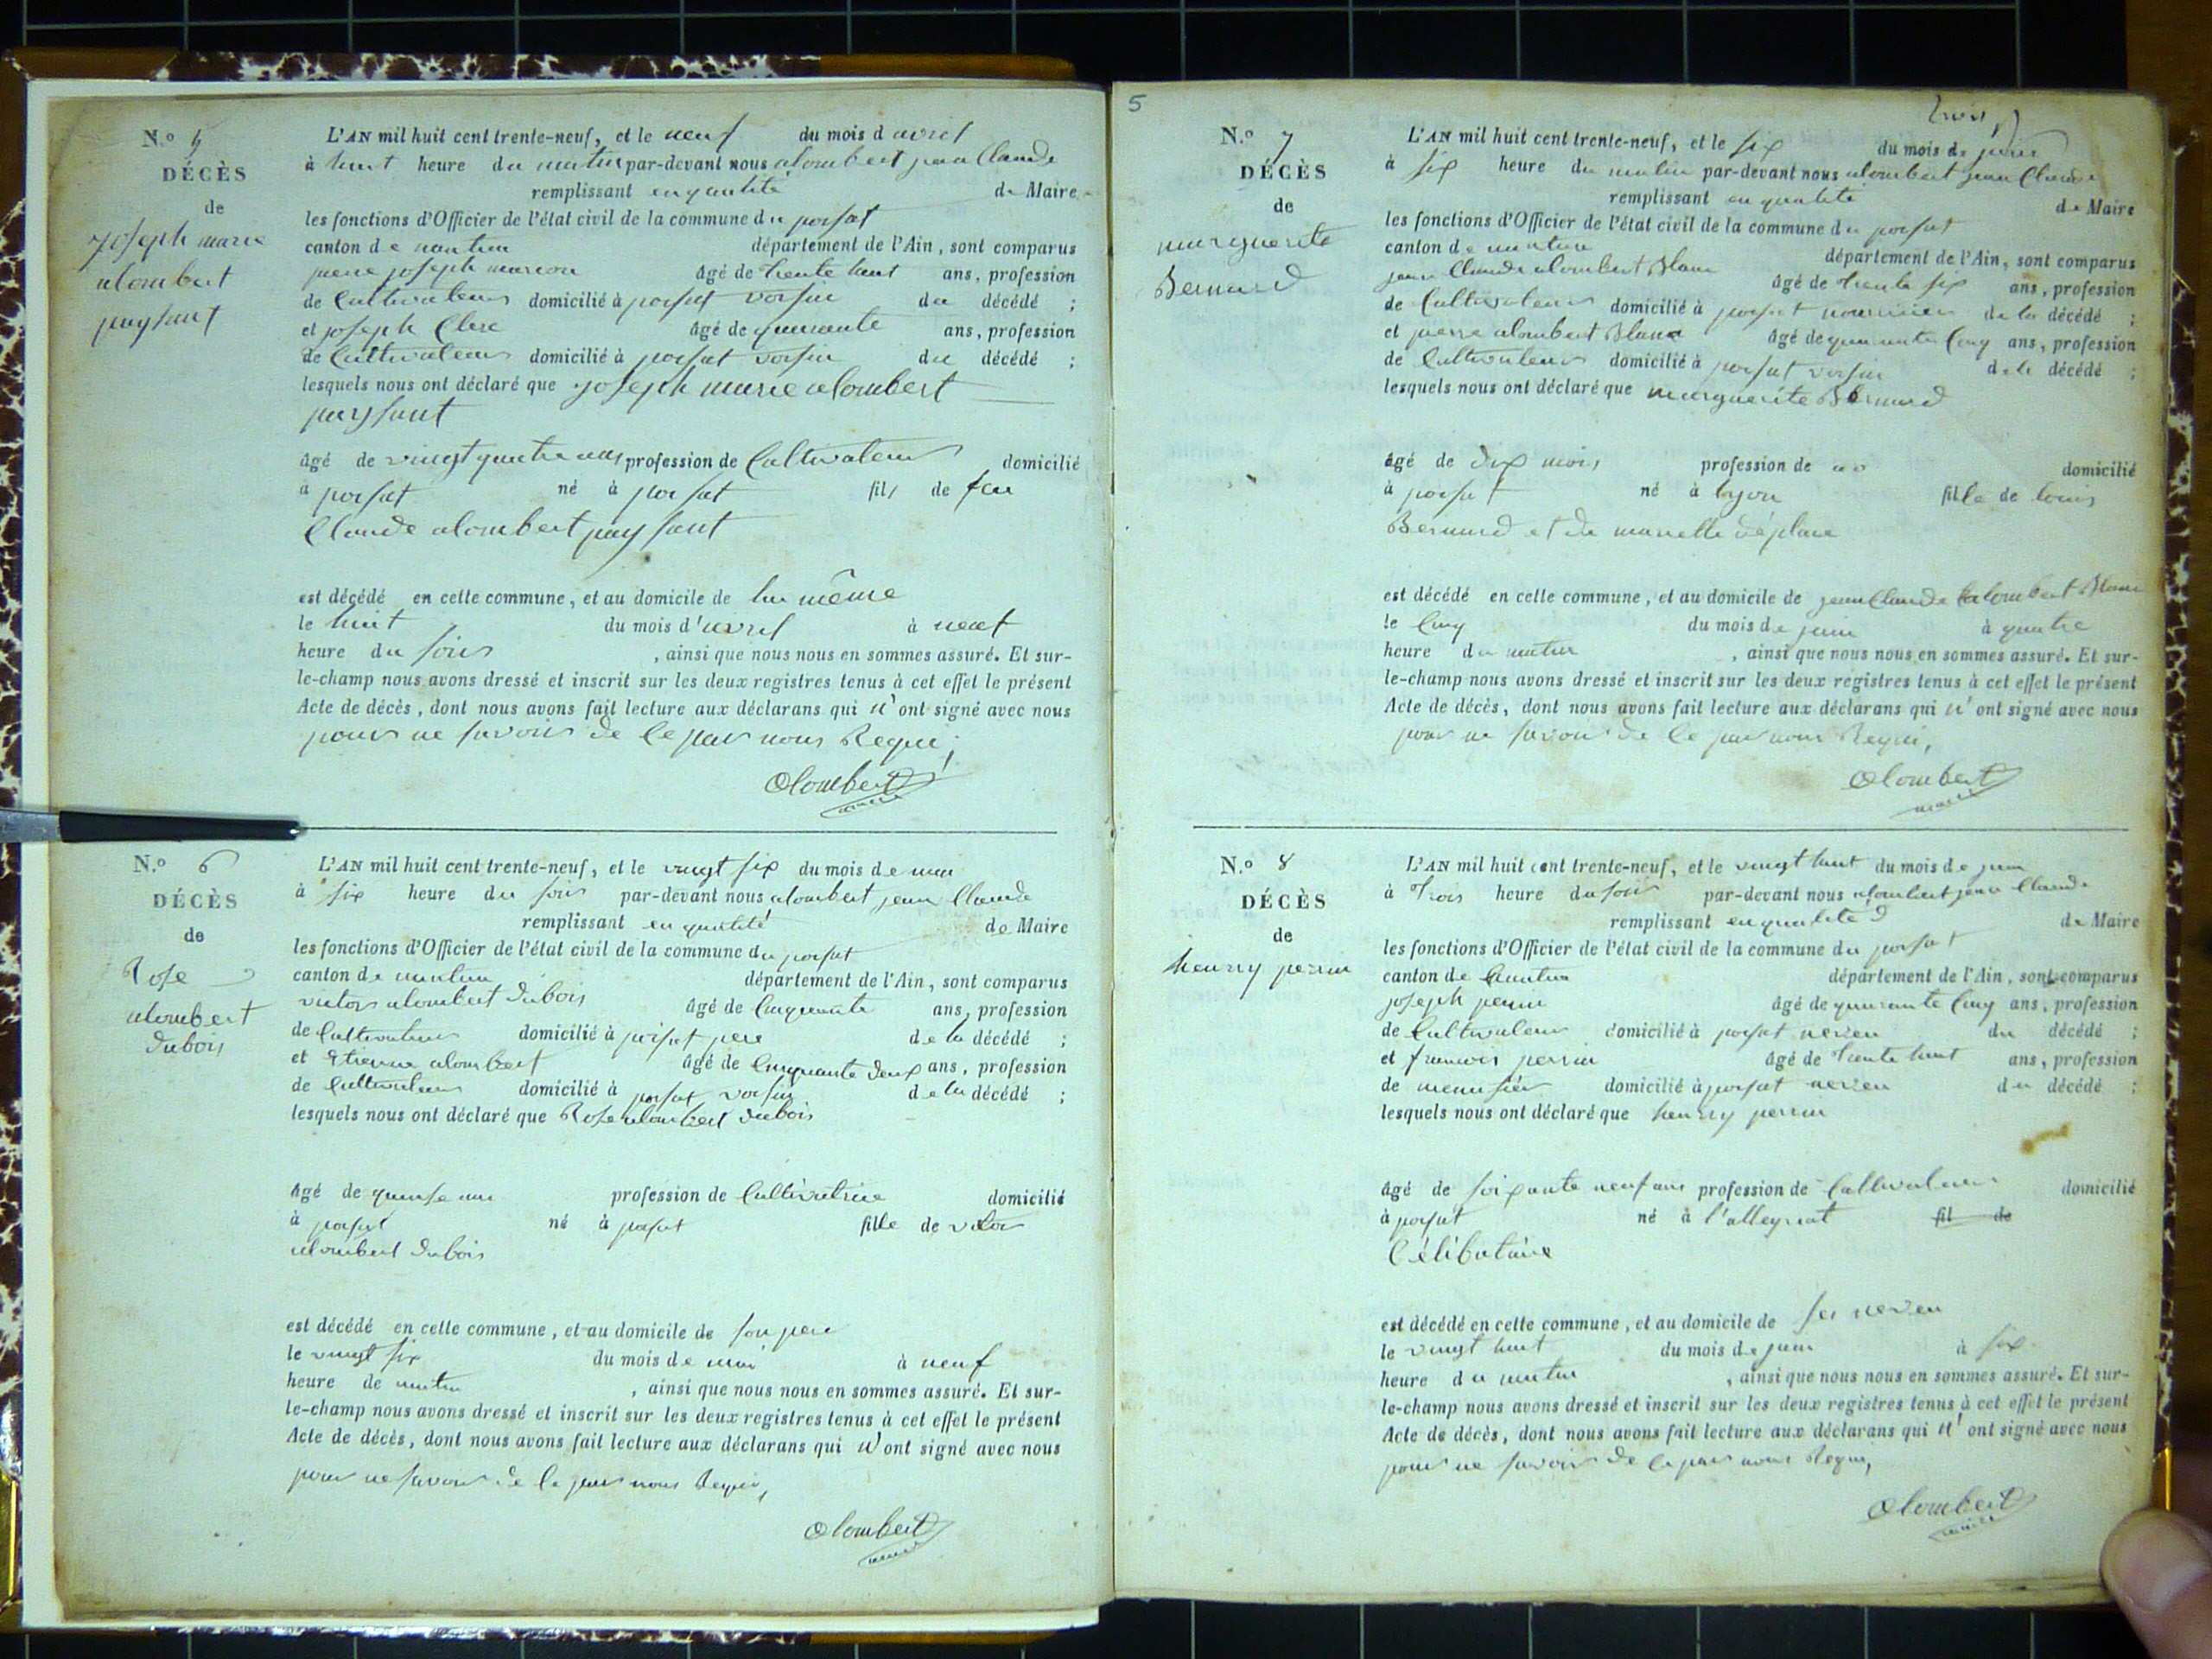 N.o 5
DÉCÈS
de
joseph marie
alombert
paysant
L'AN mil huit cent trente-neuf, et le neuf du mois d avril
à huit heure du matin par-devant nous alombert jean Claude
remplissant en qualité de Maire
les fonctions d'Officier de l'état civil de la commune du poisat
canton de nantua département de l'Ain, sont comparus
pierre joseph âgé de trente huit ans, profession
de Cultivateur domicilié à poisat voisin du décédé ;
et joseph Clerc âgé de quarante ans, profession
de Cultivateur domicilié à poisat voisin du décédé ;
lesquels nous ont déclaré que joseph marie alombert
paysant
âgé de vingt quatre ans profession de Cultivateur domicilié
à poisat né à poisat fils de feu
Claude alombert paysant
est décédé en cette commune, et au domicile de lui même
le huit du mois d'avril à neuf
heure du soir , ainsi que nous nous en sommes assuré. Et sur-
le-champ nous avons dressé et inscrit sur les deux registres tenus à cet effet le présent
Acte de décès, dont nous avons fait lecture aux déclarans qui n'ont signé avec nous
pour ne savoir de ce par nous Requi,
Alombert
maire
N.o 6
DÉCÈS
de
Rose
alombert
dubois
L'AN mil huit cent trente-neuf, et le vingt six du mois de mai
à six heure du soir par-devant nous alombert jean Claude
remplissant en qualité de Maire
les fonctions d'Officier de l'état civil de la commune du poisat
canton de nantua département de l'Ain, sont comparus
victor alombert dubois âgé de Cinquante ans, profession
de Cultivateur domicilié à poisat pere de la décédé ;
et Etienne alombert âgé de Cinquante deux ans, profession
de Cultivateur domicilié à poisat voisin de la décédé ;
lesquels nous ont déclaré que Rose alombert dubois
âgé de quinse ans profession de Cultivatrice domicilié
à poisat né à poisat fille de victor
alombert dubois
est décédé en cette commune, et au domicile de son pere
le vingt six du mois de mai à neuf
heure de matin , ainsi que nous nous en sommes assuré. Et sur-
le-champ nous avons dressé et inscrit sur les deux registres tenus à cet effet le présent
Acte de décès, dont nous avons fait lecture aux déclarans qui n'ont signé avec nous
pour ne savoir de ce par nous Requi,
Alombert
maire
5
trois
N.o 7
DÉCÈS
de
marguerite
Bernard
L'AN mil huit cent trente-neuf, et le six du mois de juin
à six heure du matin par-devant nous alombert jean Claude
remplissant en qualité de Maire
les fonctions d'Officier de l'état civil de la commune du poisat
canton de nantua département de l'Ain, sont comparus
jean Claude alombert Blanc âgé de trente six ans, profession
de Cultivateur domicilié à poisat nourricier de la décédé ;
et pierre alombert Blanc âgé de quarante Cinq ans, profession
de Cultivateur domicilié à poisat voisin de la décédé ;
lesquels nous ont déclaré que marguerite Bernard
âgé de dix mois profession de domicilié
à poisat né à lyon fille de louis
Bernard et de mariette déplace
est décédé en cette commune, et au domicile de jean Claude alombert Blanc
le Cinq du mois de juin à quatre
heure du matin , ainsi que nous nous en sommes assuré. Et sur-
le-champ nous avons dressé et inscrit sur les deux registres tenus à cet effet le présent
Acte de décès, dont nous avons fait lecture aux déclarans qui n'ont signé avec nous
pour ne savoir de ce par nous Requi,
Alombert
maire
N.o 8
DÉCÈS
de
henry perrin
L'AN mil huit cent trente-neuf, et le vingt huit du mois de juin
à trois heure du soir par-devant nous alombert jean Claude
remplissant en qualité de Maire
les fonctions d'Officier de l'état civil de la commune du poisat
canton de nantua département de l'Ain, sont comparus
joseph perrin âgé de quarante Cinq ans, profession
de Cultivateur domicilié à poisat neveu du décédé ;
et francois perrin âgé de trente huit ans, profession
de menusier domicilié à poisat neveu du décédé ;
lesquels nous ont déclaré que henry perrin
âgé de soixante neuf ans profession de Cultivateur domicilié
à poisat né à l'alleyriat fil de
Célibataire
est décédé en cette commune, et au domicile de ses neveu
le vingt huit du mois de juin à six
heure du matin , ainsi que nous nous en sommes assuré. Et sur-
le-champ nous avons dressé et inscrit sur les deux registres tenus à cet effet le présent
Acte de décès, dont nous avons fait lecture aux déclarans qui n'ont signé avec nous
pour ne savoir de ce par nous Requi,
Alombert
maire